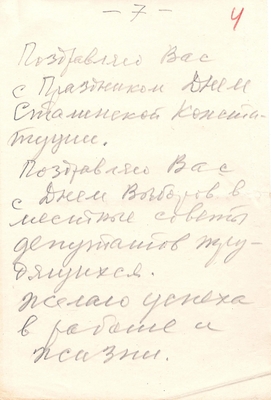 — 7 —
4
Поздравляю Вас
с Праздником Днем
Сталинской Консти-
туции.
Поздравляю Вас
с Днем Выборов в
местные советы
депутатов тру-
дящихся.
Желаю успеха
в работе и
жизни.